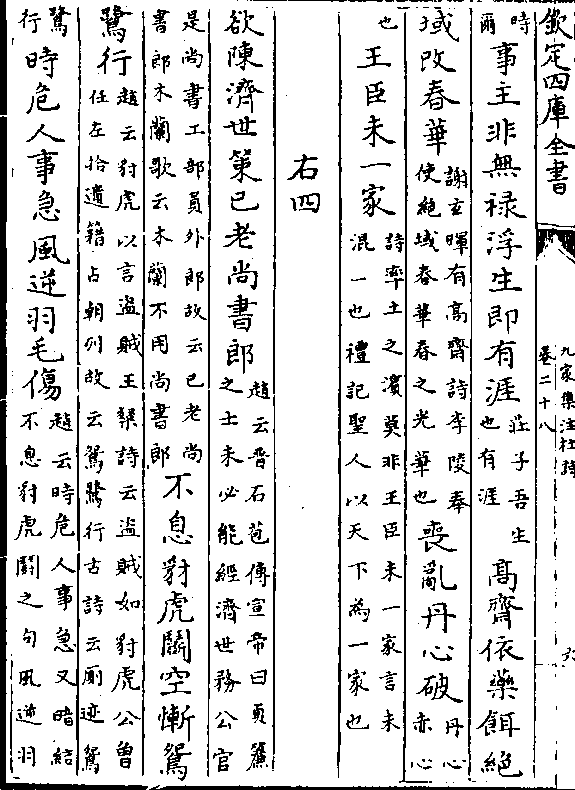 欽定四庫全書
九家集注杜詩
卷二十八
時爾事主非無禄浮生即有涯莊子吾生也有涯高齋依藥餌絶
域改春華謝玄暉有高齋詩李陵奉使絶域春華春之光華也喪亂丹心破丹心赤心
也王臣未一家詩率土之濱莫非王臣未一家言未混一也禮記聖人以天下為一家也
右四
欲陳濟世策已老尚書郎趙云晉石苞傳宣帝曰貞簾之士未必能經濟世務公官
是尚書工部員外郎故云已老尚書郎木蘭歌云木蘭不用尚書郎不息豺虎鬭空慚鴛
鷺行趙云豺虎以言盗賊王粲詩云盗賊如豺虎公曾任左拾遺籍占朝列故云鴛鷺行古詩云厠迹鴛
鷺行時危人事急風逆羽毛傷趙云時危人事急又暗結不息豺虎鬭之句風逆羽